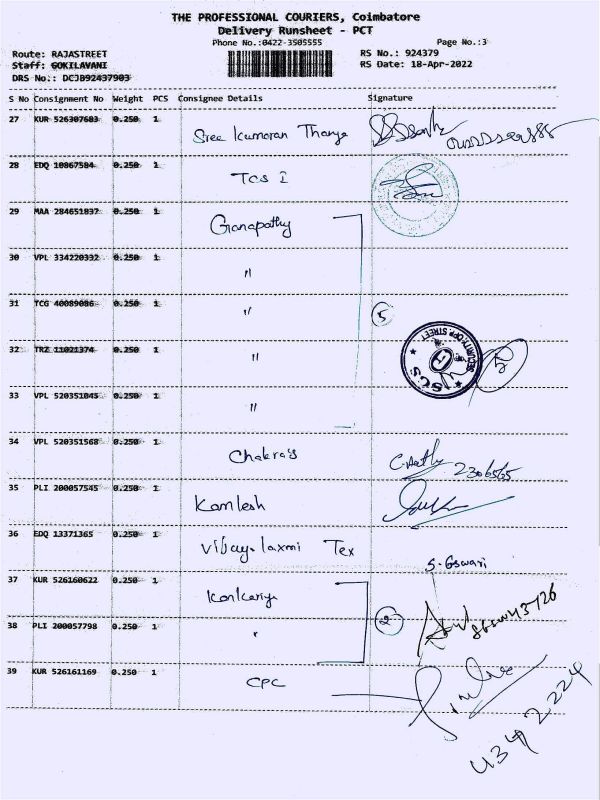 THE PROFESSIONAL COURIERS, Coimbatore
Delivery Runsheet - PCT
Phone No.:0422-3505555 Page No.:3
Route: RAJASTREET RS No.: 924379
Staff: GOKILAVANI RS Date: 18-Apr-2022
DRS No.: DCJB92437903
S No Consignment No Weight PCS Consignee Details Signature
27 KUR 526307683 0.250 1 Sree Kumaran Thanga
28 EDQ 10867584 0.250 1 TCS I
29 MAA 284651837 0.250 1 Ganapathy
30 VPL 334220332 0.250 1 "
31 TCG 40089086 0.250 1 " 5
32 TRZ 11021374 0.250 1 "
33 VPL 520351045 0.250 1 "
34 VPL 520351568 0.250 1 Chakra's
35 PLI 200057545 0.250 1 Kamlesh
36 EDQ 13371365 0.250 1 Vijaya laxmi Tex S. Eswari
37 KUR 526160622 0.250 1 Kankariya
38 PLI 200057798 0.250 1 " 2
39 KUR 526161169 0.250 1 CPC